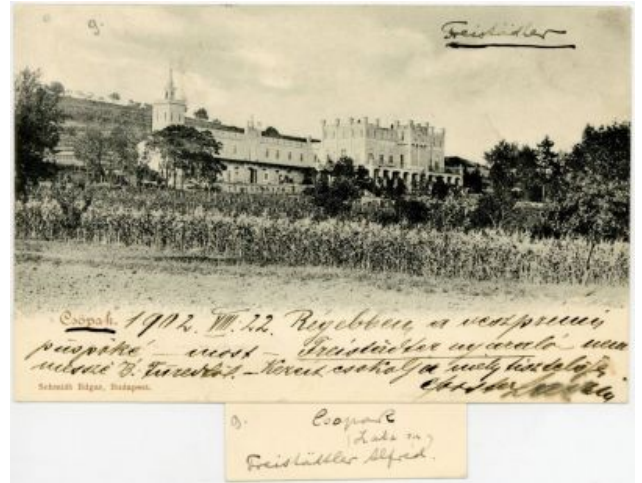 9.
Freistädler
Csopak. 1902. VIII. 22. Regebben, a veszprémi
püspöké most - Freistädter nyaraló nem
messze B. Füredtől. - Kezeit csokolja mély tisztelője
Schmidt Edgar, Budapest.
9. Csopak
(Zala m.)
Freistättler Alfréd.